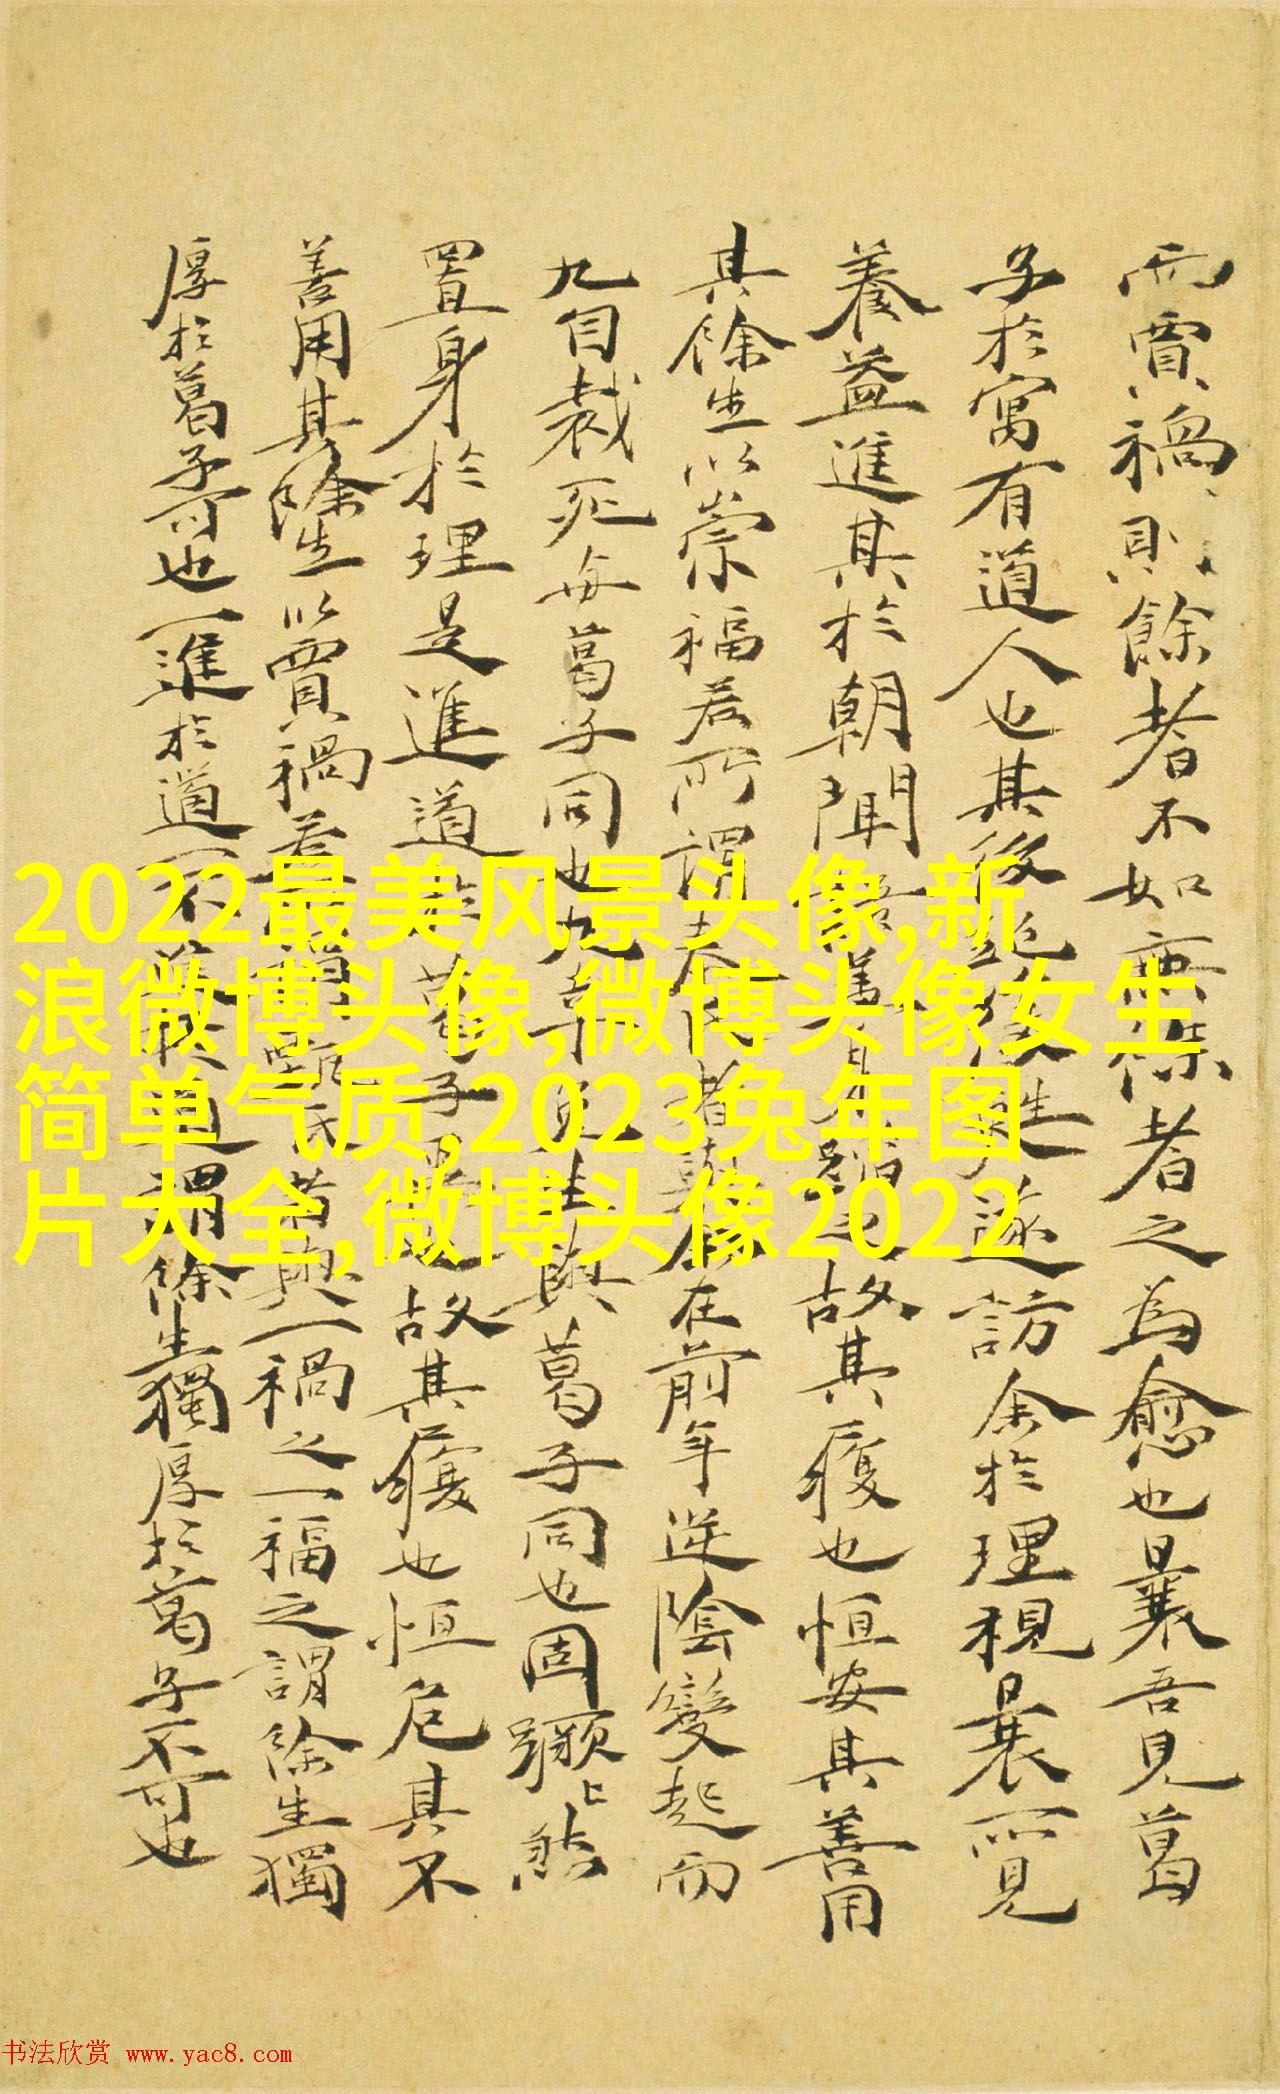 而賈禍則餘者不如無餘者之為愈也曩吾見葛
子於寓有道人也其後遂訪余於理視曩所見
養益進其於朝聞故其履也恒安其善用
其餘生以崇福若所謂者在前年逆陰變起而
九自裁死毋葛子同也九幸更生與葛子同也固蹶
置身於理是進道於葛子故其履也恒危其不
善用其餘生以賈禍若昔與一禍之一福之謂餘生獨
厚於葛子可也一進於道一不進於道謂餘生獨厚於葛子不可也
2022最美风景头像,新
浪微博头像,微博头像女生
简单气质,2023兔年图
片大全,微博头像2022
书法欣赏 www.yac8.com